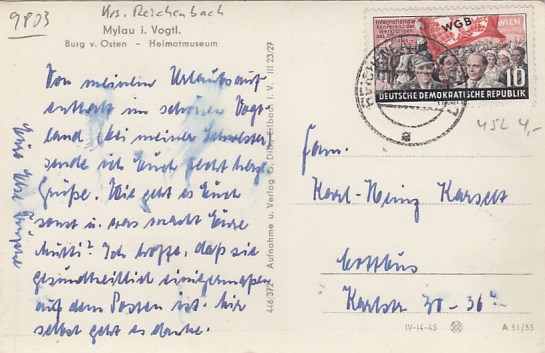 9803
Krs. Reichenbach
Mylau i. Vogtl.
Burg v. Osten - Heimatmuseum
Von meinem Urlaubsauf-
enthalt im schönen Vogt-
land bei meiner Schwester,
sende ich Euch recht herzl.
Grüße. Wie geht es Euch
sonst u. was macht Eure
Mutti? Ich hoffe, daß sie
gesundheitlich einigermaßen
auf dem Posten ist. Mir
selbst geht es danke.
446/372 Aufnahme u. Verlag G. Dietz, Erlbach i. V. III 23/27
Internationale
Konferenz der
WGB
WIEN
10
DEUTSCHE DEMOKRATISCHE REPUBLIK
452 4,-
Fam.
Karl-Heinz Karsett
Cottbus
Karlstr. 30-36
IV-14-45
A 51/55